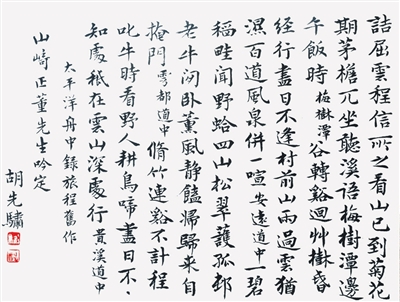 詰屈雲程信所之看山已到菊花
期茅檐兀坐聽溪語梅樹潭邊
午飯時 梅樹潭 谷轉谿迴艸樹昏
经行盡日不逢村前山雨過雲猶
濕百道風泉併一喧 安遠道中 一碧
稻畦聞野蛤四山松翠護孤邨
老牛闲卧薰風静饁婦歸来自
掩門 雩都道中 脩竹連谿不計程
叱牛時看野人耕鳥啼盡日不、
知處祇在雲山深處行 貴溪道中
太平洋舟中録旅程舊作
山崎正董先生吟定
胡先驌